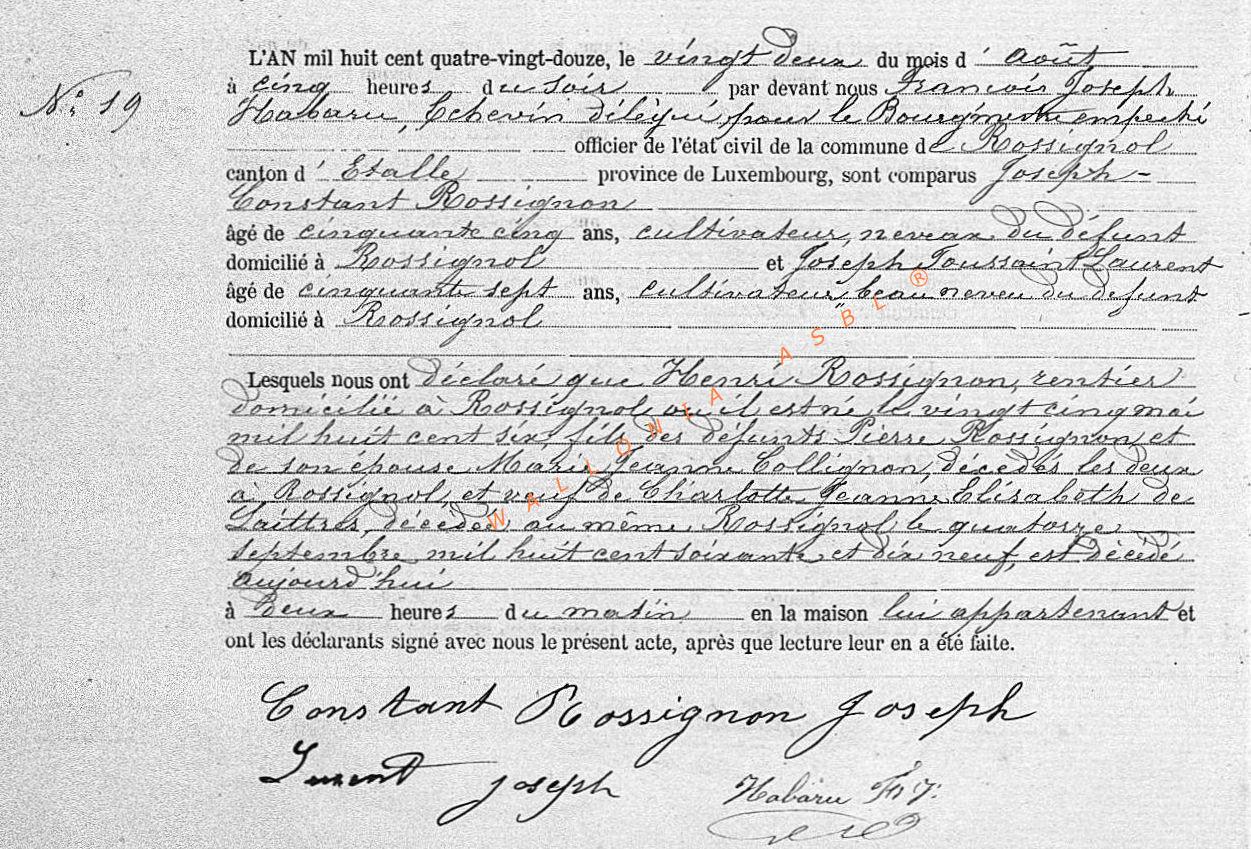 L'AN mil huit cent quatre-vingt-douze, le vingt deux du mois d' août
N° 19
à cinq heures du soir par devant nous François Joseph
Habaru, Echevin délégué pour le Bourgmestre empeché
officier de l'état civil de la commune de Rossignol
canton d' Etalle province de Luxembourg, sont comparus Joseph-
Constant Rossignon
âgé de cinquante cinq ans, cultivateur, neveax du défunt
domicilié à Rossignol et Joseph Toussaint Laurent
âgé de cinquante sept ans, cultivateur, beau neveu du defunt
domicilié à Rossignol
Lesquels nous ont déclaré que Henri Rossignon, rentier
domicilié à Rossignol où il est né le vingt cinq mai
mil huit cent six fils des défunts Pierre Rossignon et
de son épouse Marie Jeanne Collignon, décédés les deux
à Rossignol, et veuf de Charlotte Jeanne Elisabeth de
Laittres, décédée au même Rossignol le quatorze
septembre mil huit cent soixante et dix neuf, est décédé
aujourd'hui
à deux heures du matin en la maison lui appartenant et
ont les déclarants signé avec nous le présent acte, après que lecture leur en a été faite.
Constant Rossignon Joseph
Joseph
Habaru Fs J.
WALLONIA ASBL ®